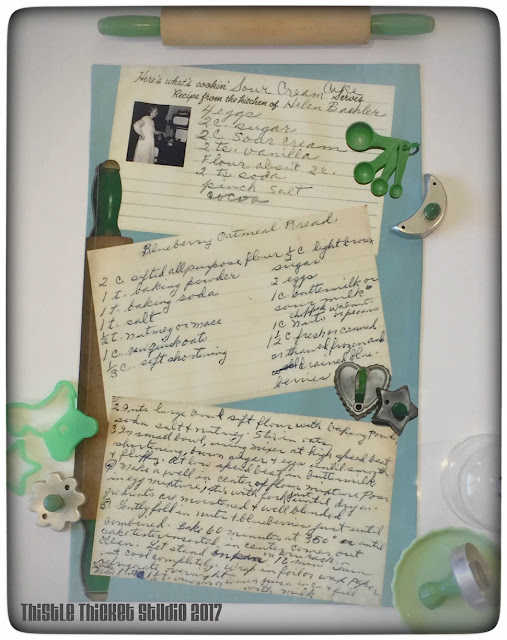 Here's what's cookin' Sour Cream Cake
Serves
Recipe from the kitchen of Helen Baehler
4 eggs
2 C. sugar
2 C Sour Cream
2 ts. vanilla
Flour about 2 c.
2 ts soda
pinch salt
cocoa
Blueberry Oatmeal Bread
2 c. sifted all purpose flour
1 t. baking powder
1 t. baking soda
1 t. salt
½ t. nutmeg or mace
1 c. raw quick oats
⅓ c. soft shortening
½ c light brown
sugar
2 eggs
1 c buttermilk or
sour milk
chopped walnut
1 c nuts or pecans
1½ c fresh or canned
or thawed frozen and
drained blue-
berries
2 Into large bowl sift flour with baking powd
soda salt & nutmeg. Stir in oats
3 In small bowl, with mixer at high speed beat
shortening, brown sugar & eggs until smooth
& fluffy. At low speed beat in buttermilk
4 Make a well in center of flour mixture pour
in egg mixture, stir with fork just until dry in-
gredients are moistened & well blended
5 Gently fold in nuts & blueberries just until
combined. Bake 60 minutes at 350° or until
cake tester inserted in center comes out
clean. Let stand in pan 10 min. Turn
out cool completely. Wrap in foil or wax paper
overnight
with milk
Thistle Thicket Studio 2017